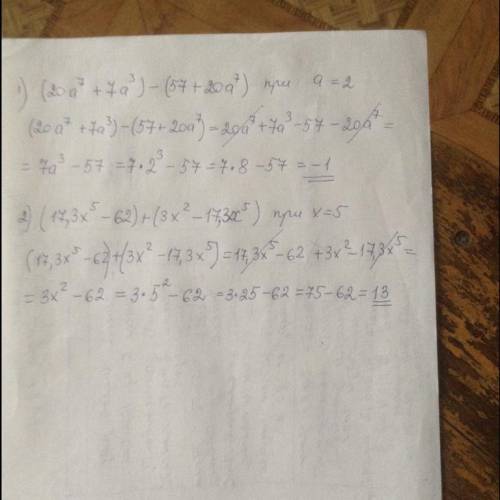 1) (20a⁷ + 7a³) – (57 + 20a⁷) при a = 2
(20a⁷ + 7a³) – (57 + 20a⁷) = 20a⁷ + 7a³ – 57 – 20a⁷ =
= 7a³ – 57 = 7 · 2³ – 57 = 7 · 8 – 57 = –1
2) (17,3x⁵ – 62) + (3x² – 17,3x⁵) при x = 5
(17,3x⁵ – 62) + (3x² – 17,3x⁵) = 17,3x⁵ – 62 + 3x² – 17,3x⁵ =
= 3x² – 62 = 3 · 5² – 62 = 3 · 25 – 62 = 75 – 62 = 13